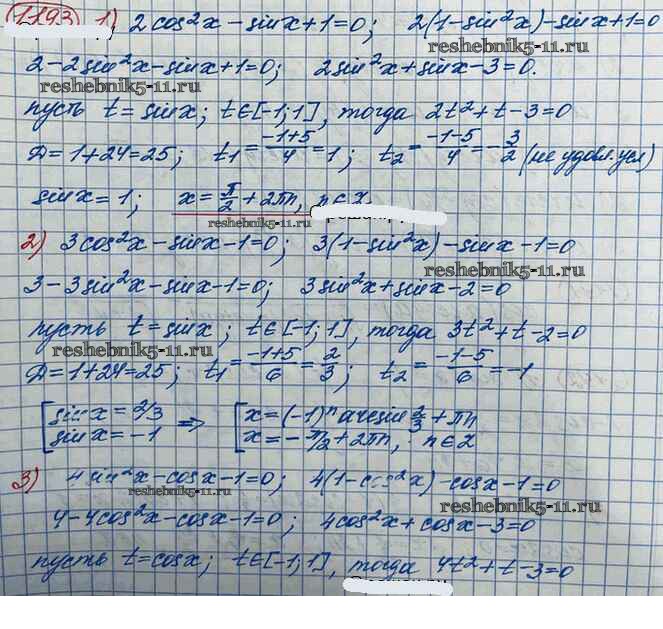 1193 1) 2cos²x - sinx + 1 = 0; 2(1 - sin²x) - sinx + 1 = 0
reshebnik5-11.ru
2 - 2sin²x - sinx + 1 = 0; 2sin²x + sinx - 3 = 0.
reshebnik5-11.ru
пусть t = sinx; t∈[-1;1], тогда 2t² + t - 3 = 0
Д = 1 + 24 = 25; t₁ = (-1+5)/4 = 1; t₂ = (-1-5)/4 = -3/2 (не удовл. усл)
sinx = 1; x = π/2 + 2πn, n∈Z
reshebnik5-11.ru
2) 3cos²x - sinx - 1 = 0; 3(1 - sin²x) - sinx - 1 = 0
reshebnik5-11.ru
3 - 3sin²x - sinx - 1 = 0; 3sin²x + sinx - 2 = 0
пусть t = sinx; t∈[-1;1], тогда 3t² + t - 2 = 0
reshebnik5-11.ru
Д = 1 + 24 = 25; t₁ = (-1+5)/6 = 2/3; t₂ = (-1-5)/6 = -1
[sinx = 2/3 ⇒ [x = (-1)ⁿ arcsin 2/3 + πn
[sinx = -1 [x = -π/2 + 2πn, n∈Z
3) 4sin²x - cosx - 1 = 0; 4(1 - cos²x) - cosx - 1 = 0
reshebnik5-11.ru
reshebnik5-11.ru
4 - 4cos²x - cosx - 1 = 0; 4cos²x + cosx - 3 = 0
пусть t = cosx; t∈[-1;1], тогда 4t² + t - 3 = 0